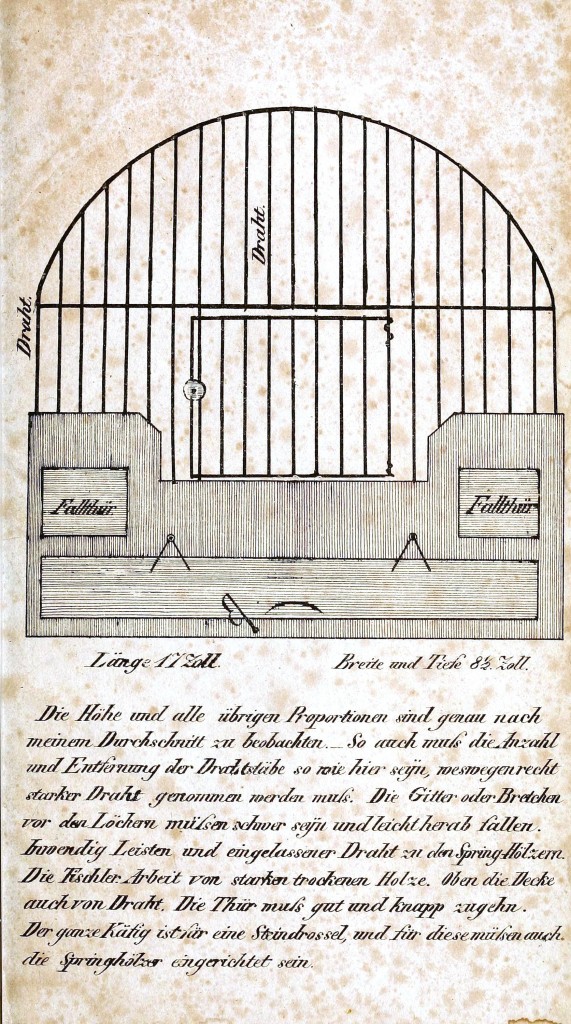 Draht.
Draht.
Fallthür
Fallthür
Länge 17 Zoll.
Breite und Tiefe 8½ Zoll.
Die Höhe und alle übrigen Proportionen sind genau nach
meinem Durchschnitt zu beobachten._ So auch muſs die Anzahl
und Entfernung der Drahtstäbe so wie hier seÿn, weswegen recht
starker Draht genommen werden muſs. Die Gitter oder Bretchen
vor den Löchern müſsen schwer seÿn und leicht herab fallen.
Inwendig Leisten und eingelassener Draht zu den Spring-Hölzern.
Die Tischler Arbeit von starken trockenen Holze. Oben die Decke
auch von Draht. Die Thür muſs gut und knapp zugehn.
Der ganze Käfig ist für eine Steindrossel, und für diese müſsen auch
die Springhölzer eingerichtet sein.